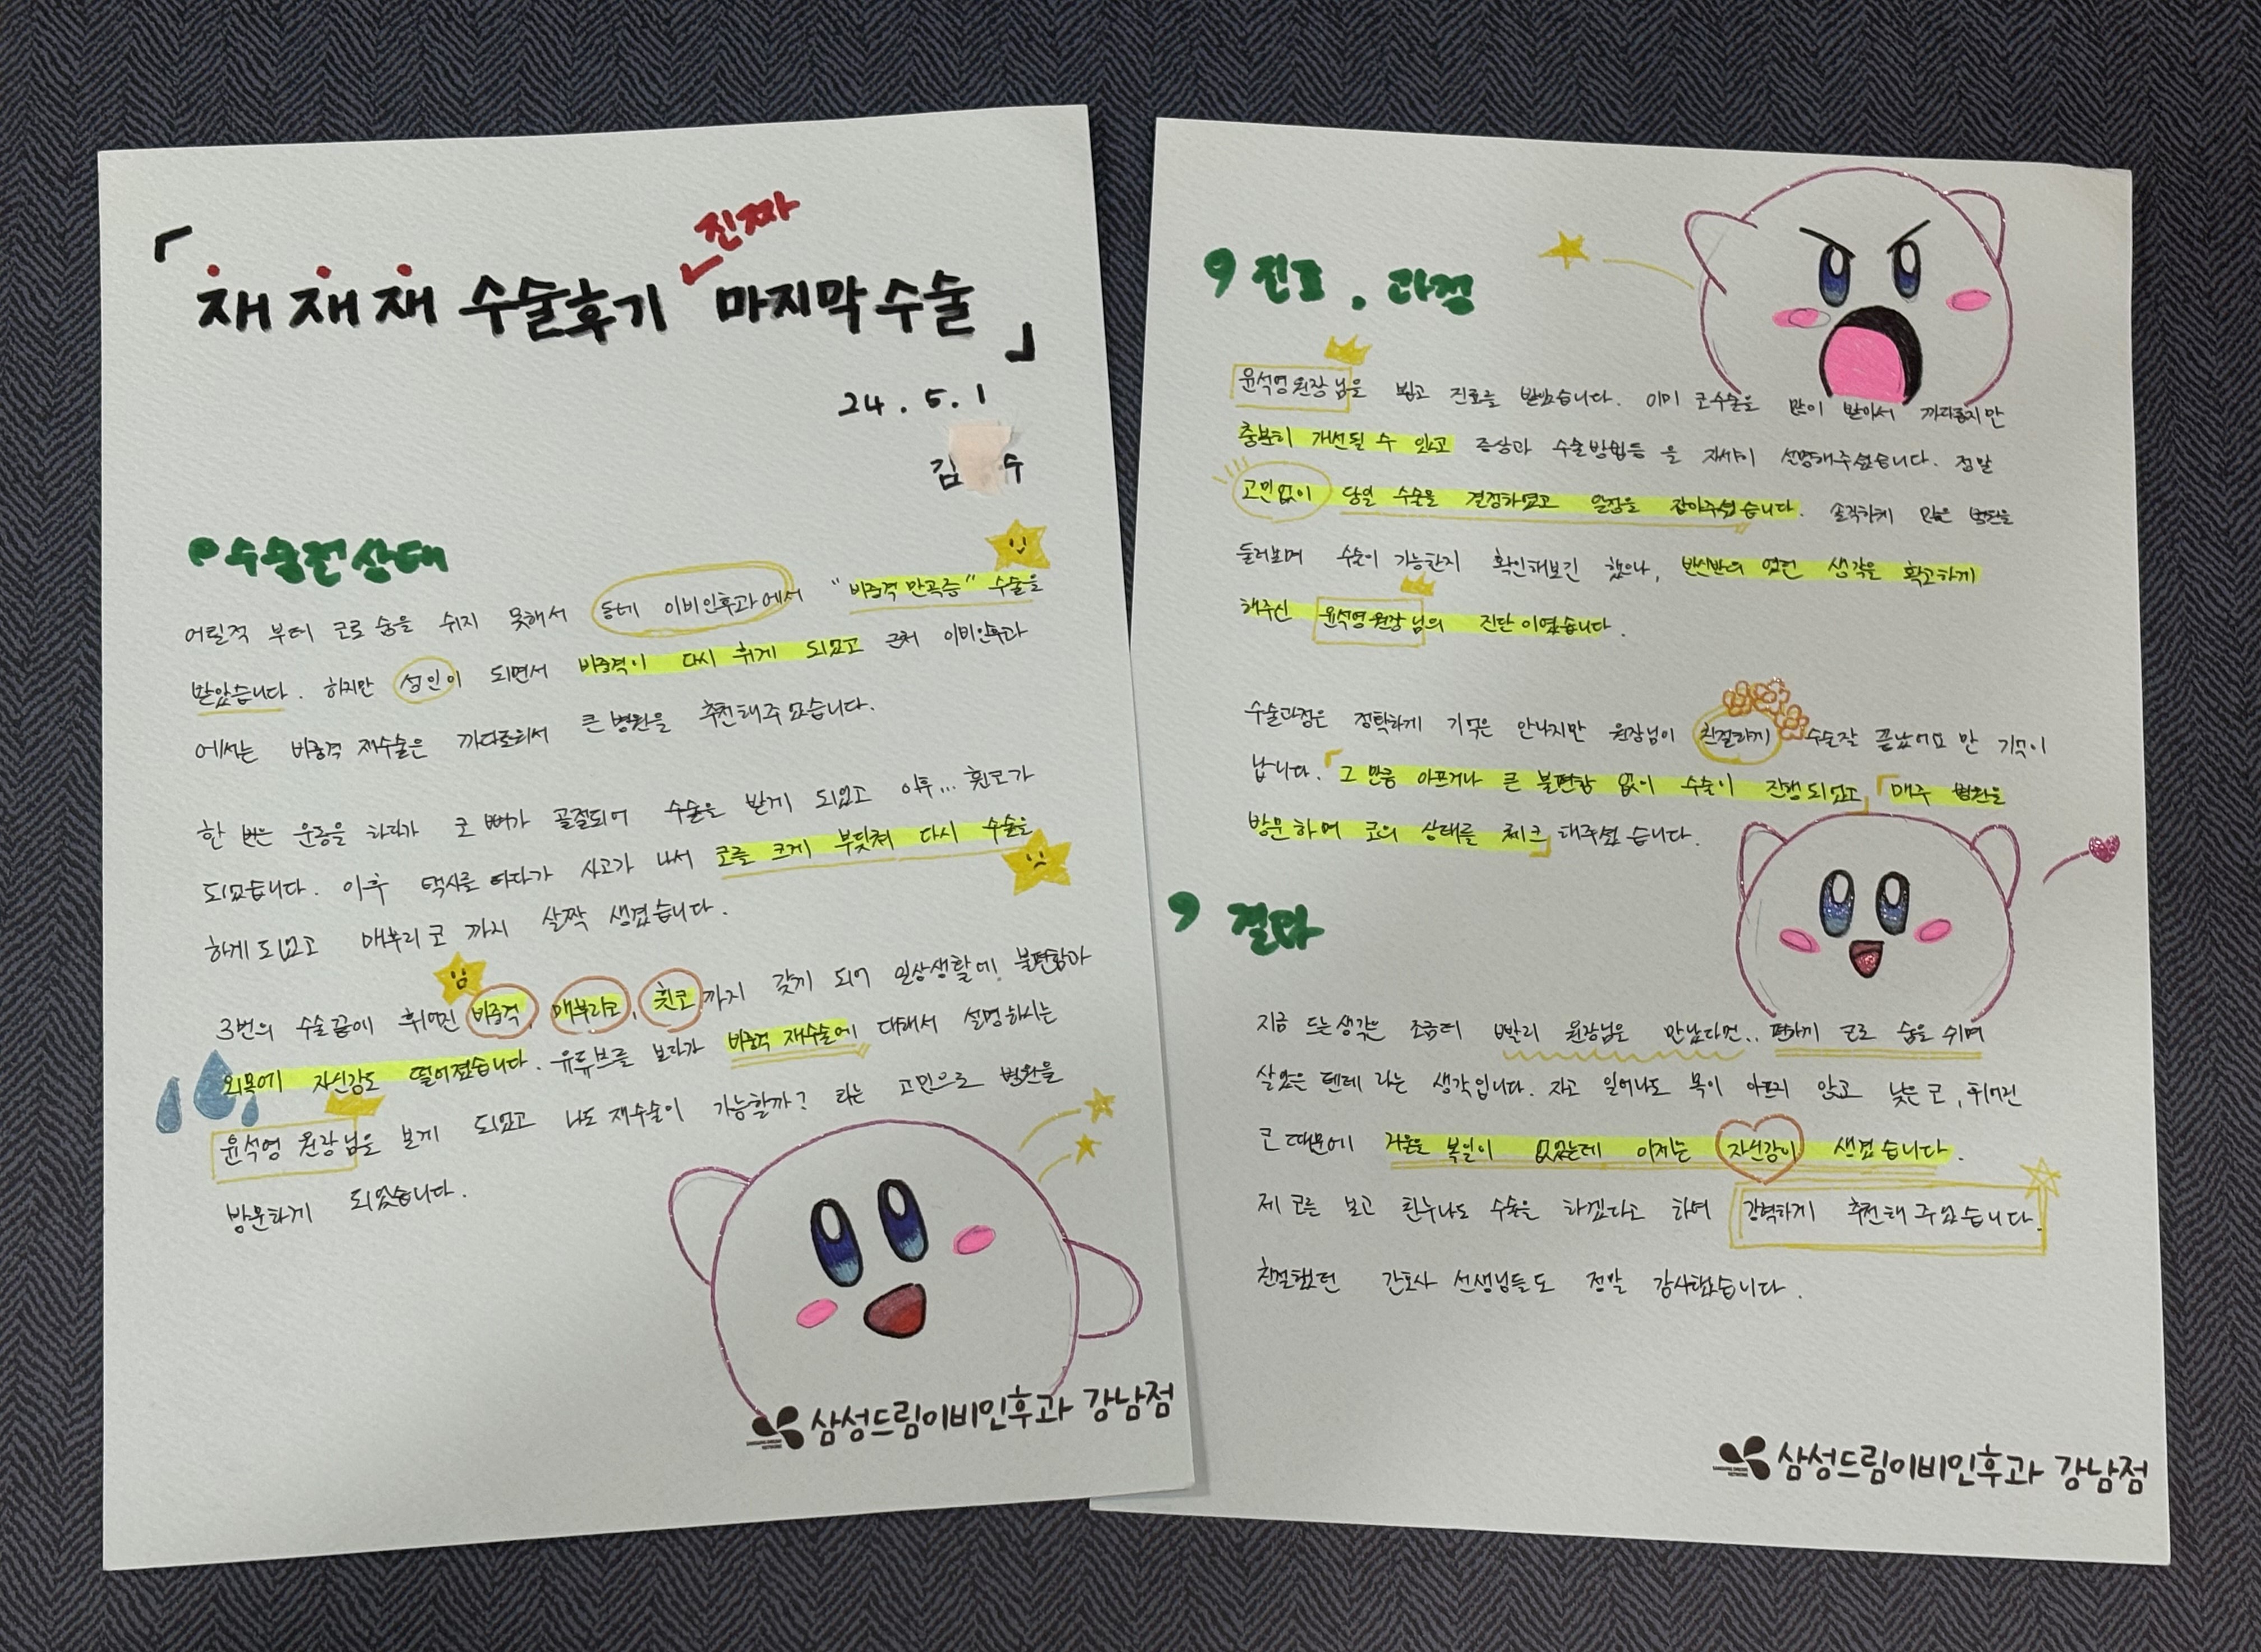 「재재재 수술후기 진짜 마지막 수술」
24.5.1
김 수
수술전상태
어릴적 부터 코로 숨을 쉬지 못해서 동네 이비인후과에서 "비중격 만곡증" 수술을
받았습니다. 하지만 성인이 되면서 비중격이 다시 휘게 되었고 근처 이비인후과
에서는 비중격 재수술은 까다로워서 큰 병원을 추천해주었습니다.
한 번은 운동을 하다가 코 뼈가 골절되어 수술을 받게 되었고 이후... 휜코가
되었습니다. 이후 택시를 타다가 사고가 나서 코를 크게 부딪쳐 다시 수술을
하게되었고 매부리코 까지 살짝 생겼습니다.
3번의 수술끝에 휘어진 비중격, 매부리코, 휜코까지 갖게 되어 일상생활에 불편함과
외목에 자신감도 떨어졌습니다. 유튜브를 보다가 비중격 재수술에 대해서 설명하시는
윤석영 원장님을 보게 되었고 나도 재수술이 가능할까? 라는 고민으로 병원을
방문하게 되었습니다.
삼성드림이비인후과 강남점
진료, 과정
윤석영원장님을 뵙고 진료를 받았습니다. 이미 코수술을 많이 받아서 까다롭지만
충분히 개선될 수 있고 증상과 수술방법등 을 자세히 설명해주셨습니다. 정말
고민없이 당일 수술을 결정하였고 일정을 잡아주셨습니다. 솔직하게 많은 병원을
둘러보며 수술이 가능한지 확인해보긴 했으나, 반신반의 였던 생각을 확고하게
해주신 윤석영원장님의 진단이였습니다.
수술과정은 정확하게 기억은 안나지만 원장님이 친절하게 수술잘 끝났어요 만 기억이
납니다. 「그 만큼 아프거나 큰 불편함 없이 수술이 진행되었고」 「매주 병원을
방문하여 코의 상태를 체크」해주셨습니다.
결과
지금 드는생각은 조금더 빨리 원장님을 만났다면.. 편하게 코로 숨을 쉬며
살았을텐데 라는 생각입니다. 자고 일어나도 목이 아프지 않고 낮은코, 휘어진
코 때문에 거울을 볼일이 없었는데 이제는 자신감이 생겼습니다.
제 코를 보고 친누나도 수술을 하겠다고 하여 강력하게 추천해 주었습니다.
친절했던 간호사 선생님들도 정말 감사했습니다.
삼성드림이비인후과 강남점